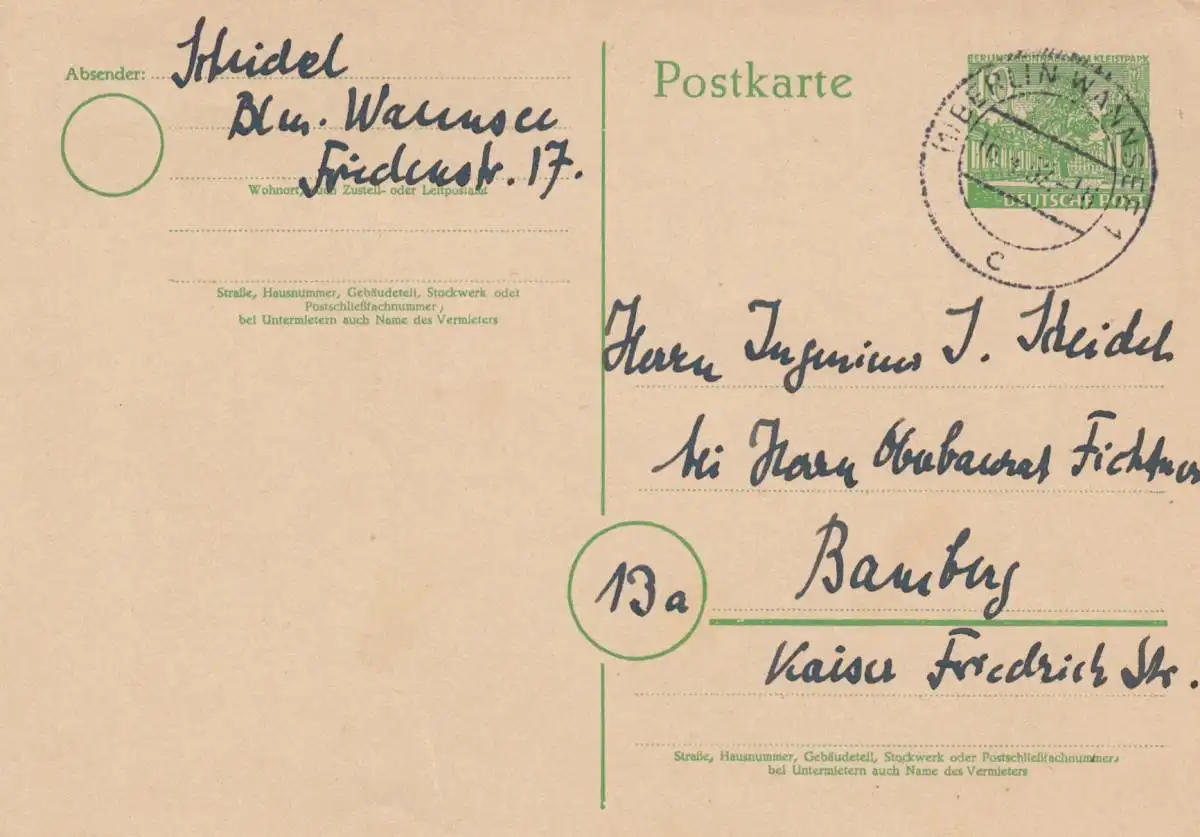 Absender: Scheidel
Bln. Wannsee
Friedenstr. 17.
Wohnort, auch Zustell- oder Leitpostamt
Straße, Hausnummer, Gebäudeteil, Stockwerk oder
Postschließfachnummer,
bei Untermietern auch Name des Vermieters
Postkarte
BERLIN KLEISTPARK
DEUTSCHE POST
(1) BERLIN WANNSEE 1
c
Herrn Ingenieur J. Scheidel
bei Herrn Oberbaurat Fichtner
13a
Bamberg
Kaiser Friedrich Str.
Straße, Hausnummer, Gebäudeteil, Stockwerk oder Postschließfachnummer,
bei Untermietern auch Name des Vermieters